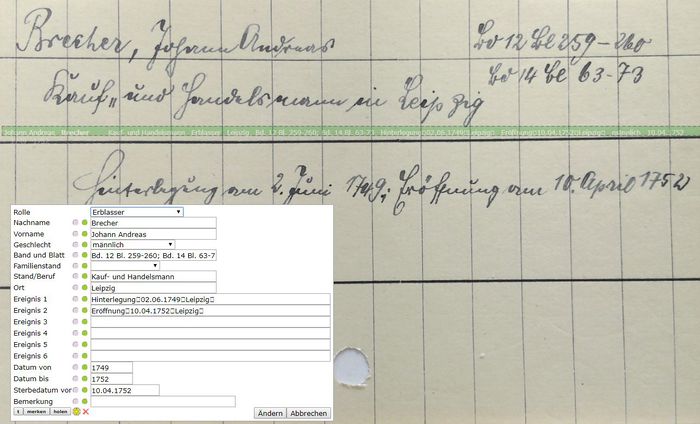 Brecher, Johann Andreas
Bd 12 Bl 259-260
Bd 14 Bl 63-73
Kauf„ und Handelsmann in Leipzig
Johann Andreas Brecher Kauf- und Handelsmann Erblasser Leipzig Bd. 12 Bl. 259-260; Bd. 14 Bl. 63-73 Hinterlegung▯02.06.1749▯Leipzig▯ Eröffnung▯10.04.1752▯Leipzig▯ männlich 10.04.1752
Hinterlegung am 2. Juni 1749; Eröffnung am 10. April 1752
Rolle Erblasser
Nachname Brecher
Vorname Johann Andreas
Geschlecht männlich
Band und Blatt Bd. 12 Bl. 259-260; Bd. 14 Bl. 63-7
Familienstand
Stand/Beruf Kauf- und Handelsmann
Ort Leipzig
Ereignis 1 Hinterlegung▯02.06.1749▯Leipzig▯
Ereignis 2 Eröffnung▯10.04.1752▯Leipzig▯
Ereignis 3
Ereignis 4
Ereignis 5
Ereignis 6
Datum von 1749
Datum bis 1752
Sterbedatum vor 10.04.1752
Bemerkung
t merken holen Ändern Abbrechen